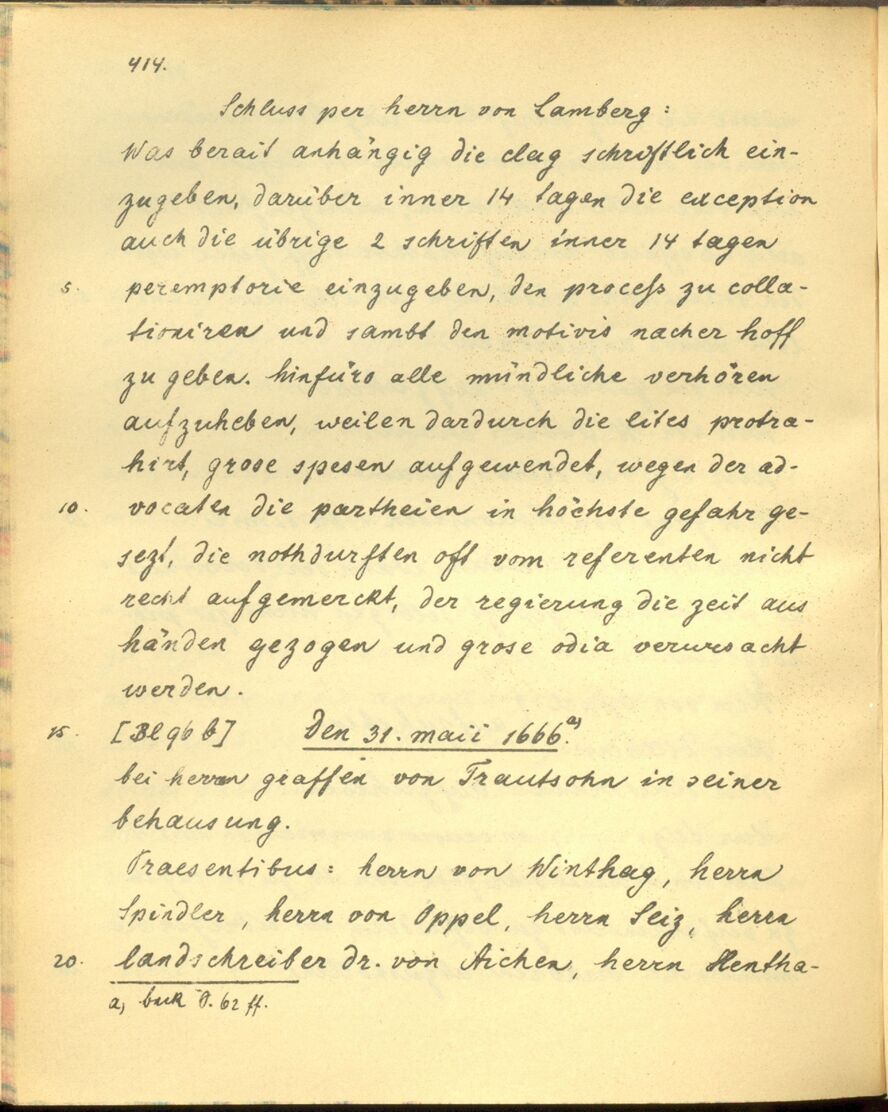 414.
Schluss per herrn von Lamberg:
Was berait anhängig die clag schriftlich ein-
zugeben, darüber inner 14 tagen die exception
auch die übrige 2 schriften inner 14 tagen
5. peremptorie einzugeben, den process zu colla-
tioniren und sambt den motivis nacher hoff
zu geben. hinfüro alle mündliche verhören
aufzuheben, weilen dardurch die lites protra-
hirt, grose spesen aufgewendet, wegen der ad-
10. vocaten die partheien in höchste gefahr ge-
sezt, die nothdurften oft vom referenten nicht
recht aufgemerckt, der regierung die zeit aus
händen gezogen und grose odia verursacht
werden.
15. [Bl 96 b] Den 31. maii 1666.a)
bei herrn graffen von Trautsohn in seiner
behausung.
Praesentibus: herrn von Winthag, herrn
Spindler, herrn von Oppel, herrn Seiz, herrn
20. landschreiber dr. von Aichen, herrn Hentha-
a, S. 62 ff.